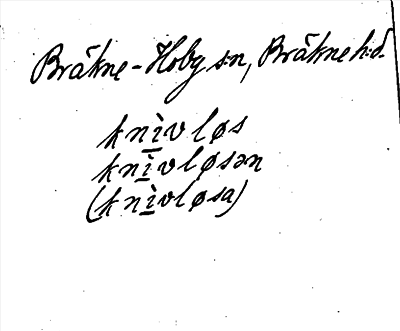 Bräkne-Hoby s:n, Bräkne h:d.
knìvløs
knìvløsən
(knìvløsa)